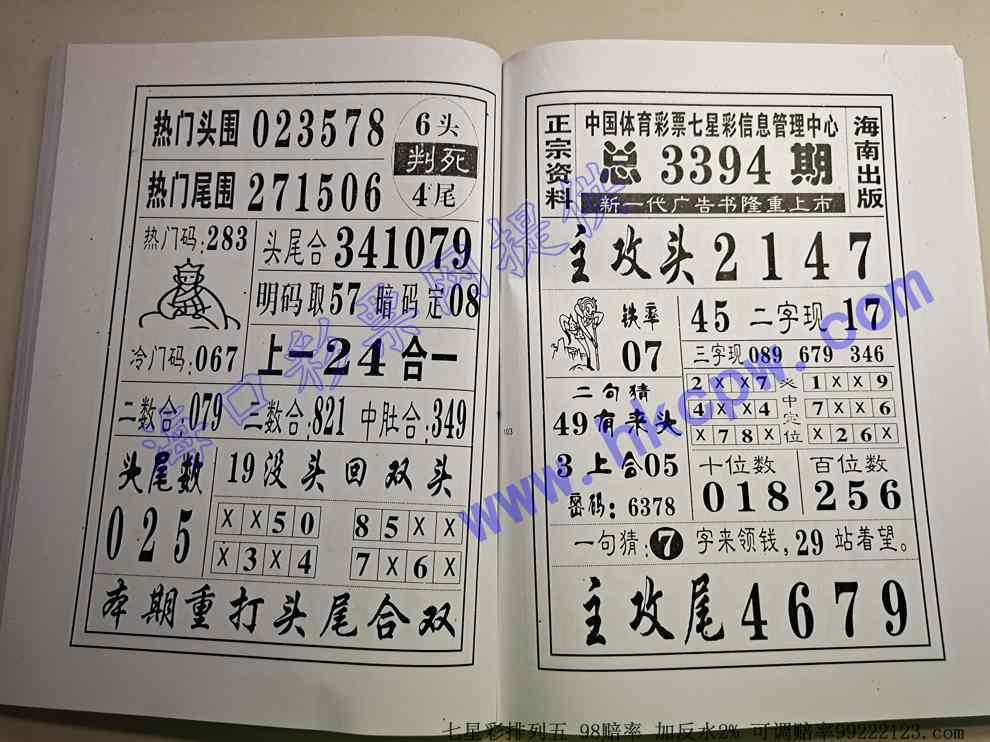 热门头围 023578
热门尾围 271506
6头
判死
4尾
热门码:283
冷门码:067
头尾合 341079
明码取57 暗码定08
上一24合一
二数合:079 三数合:821 中肚合:349
头尾数
025
19没头回双头
XX50 85XX
X3X4 7X6X
本期重打头尾合双
正宗资料
中国体育彩票七星彩信息管理中心
总 3394 期
新一代广告书隆重上市
海南出版
主攻头2147
铁率
07
45 二字现 17
三字现 089 679 346
2XX7 1XX9
4XX4 7XX6
X78X X26X
中定位
二句猜
49有来头
3上合05
密码:6378
十位数 百位数
018 256
一句猜:7字来领钱,29站着望。
主攻尾4679
103
海口彩票网提供
www.hkcpw.com
七星彩排列五 98赔率 加反水2% 可调赔率99222123.com